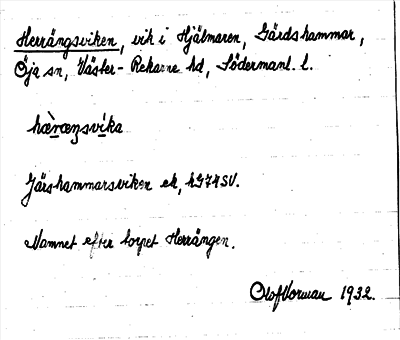 Herrängsviken, vik i Hjälmaren, Gärdshammar,
Öja sn, Väster-Rekarne hd, Södermanl. l.
hæ̀ræŋsvika
Järshammarsviken ek, h 974 SV.
Namnet efter torpet Herrängen.
Olof Vorman 1932.